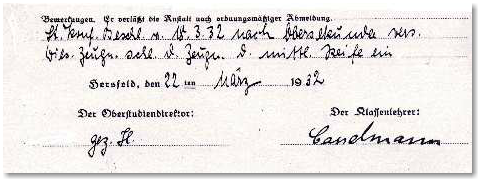 Bemerkungen. Er verläßt die Anstalt nach ordnungsmäßiger Abmeldung.
Lt. Konf. Beschl. v. 18.3.32 nach Obersekunda vers.
Dies. Zeugn. schl. d. Zeugn. d. mittl. Reife ein
Hersfeld, den 22 ten März 1932
Der Oberstudiendirektor: Der Klassenlehrer:
gez. H.